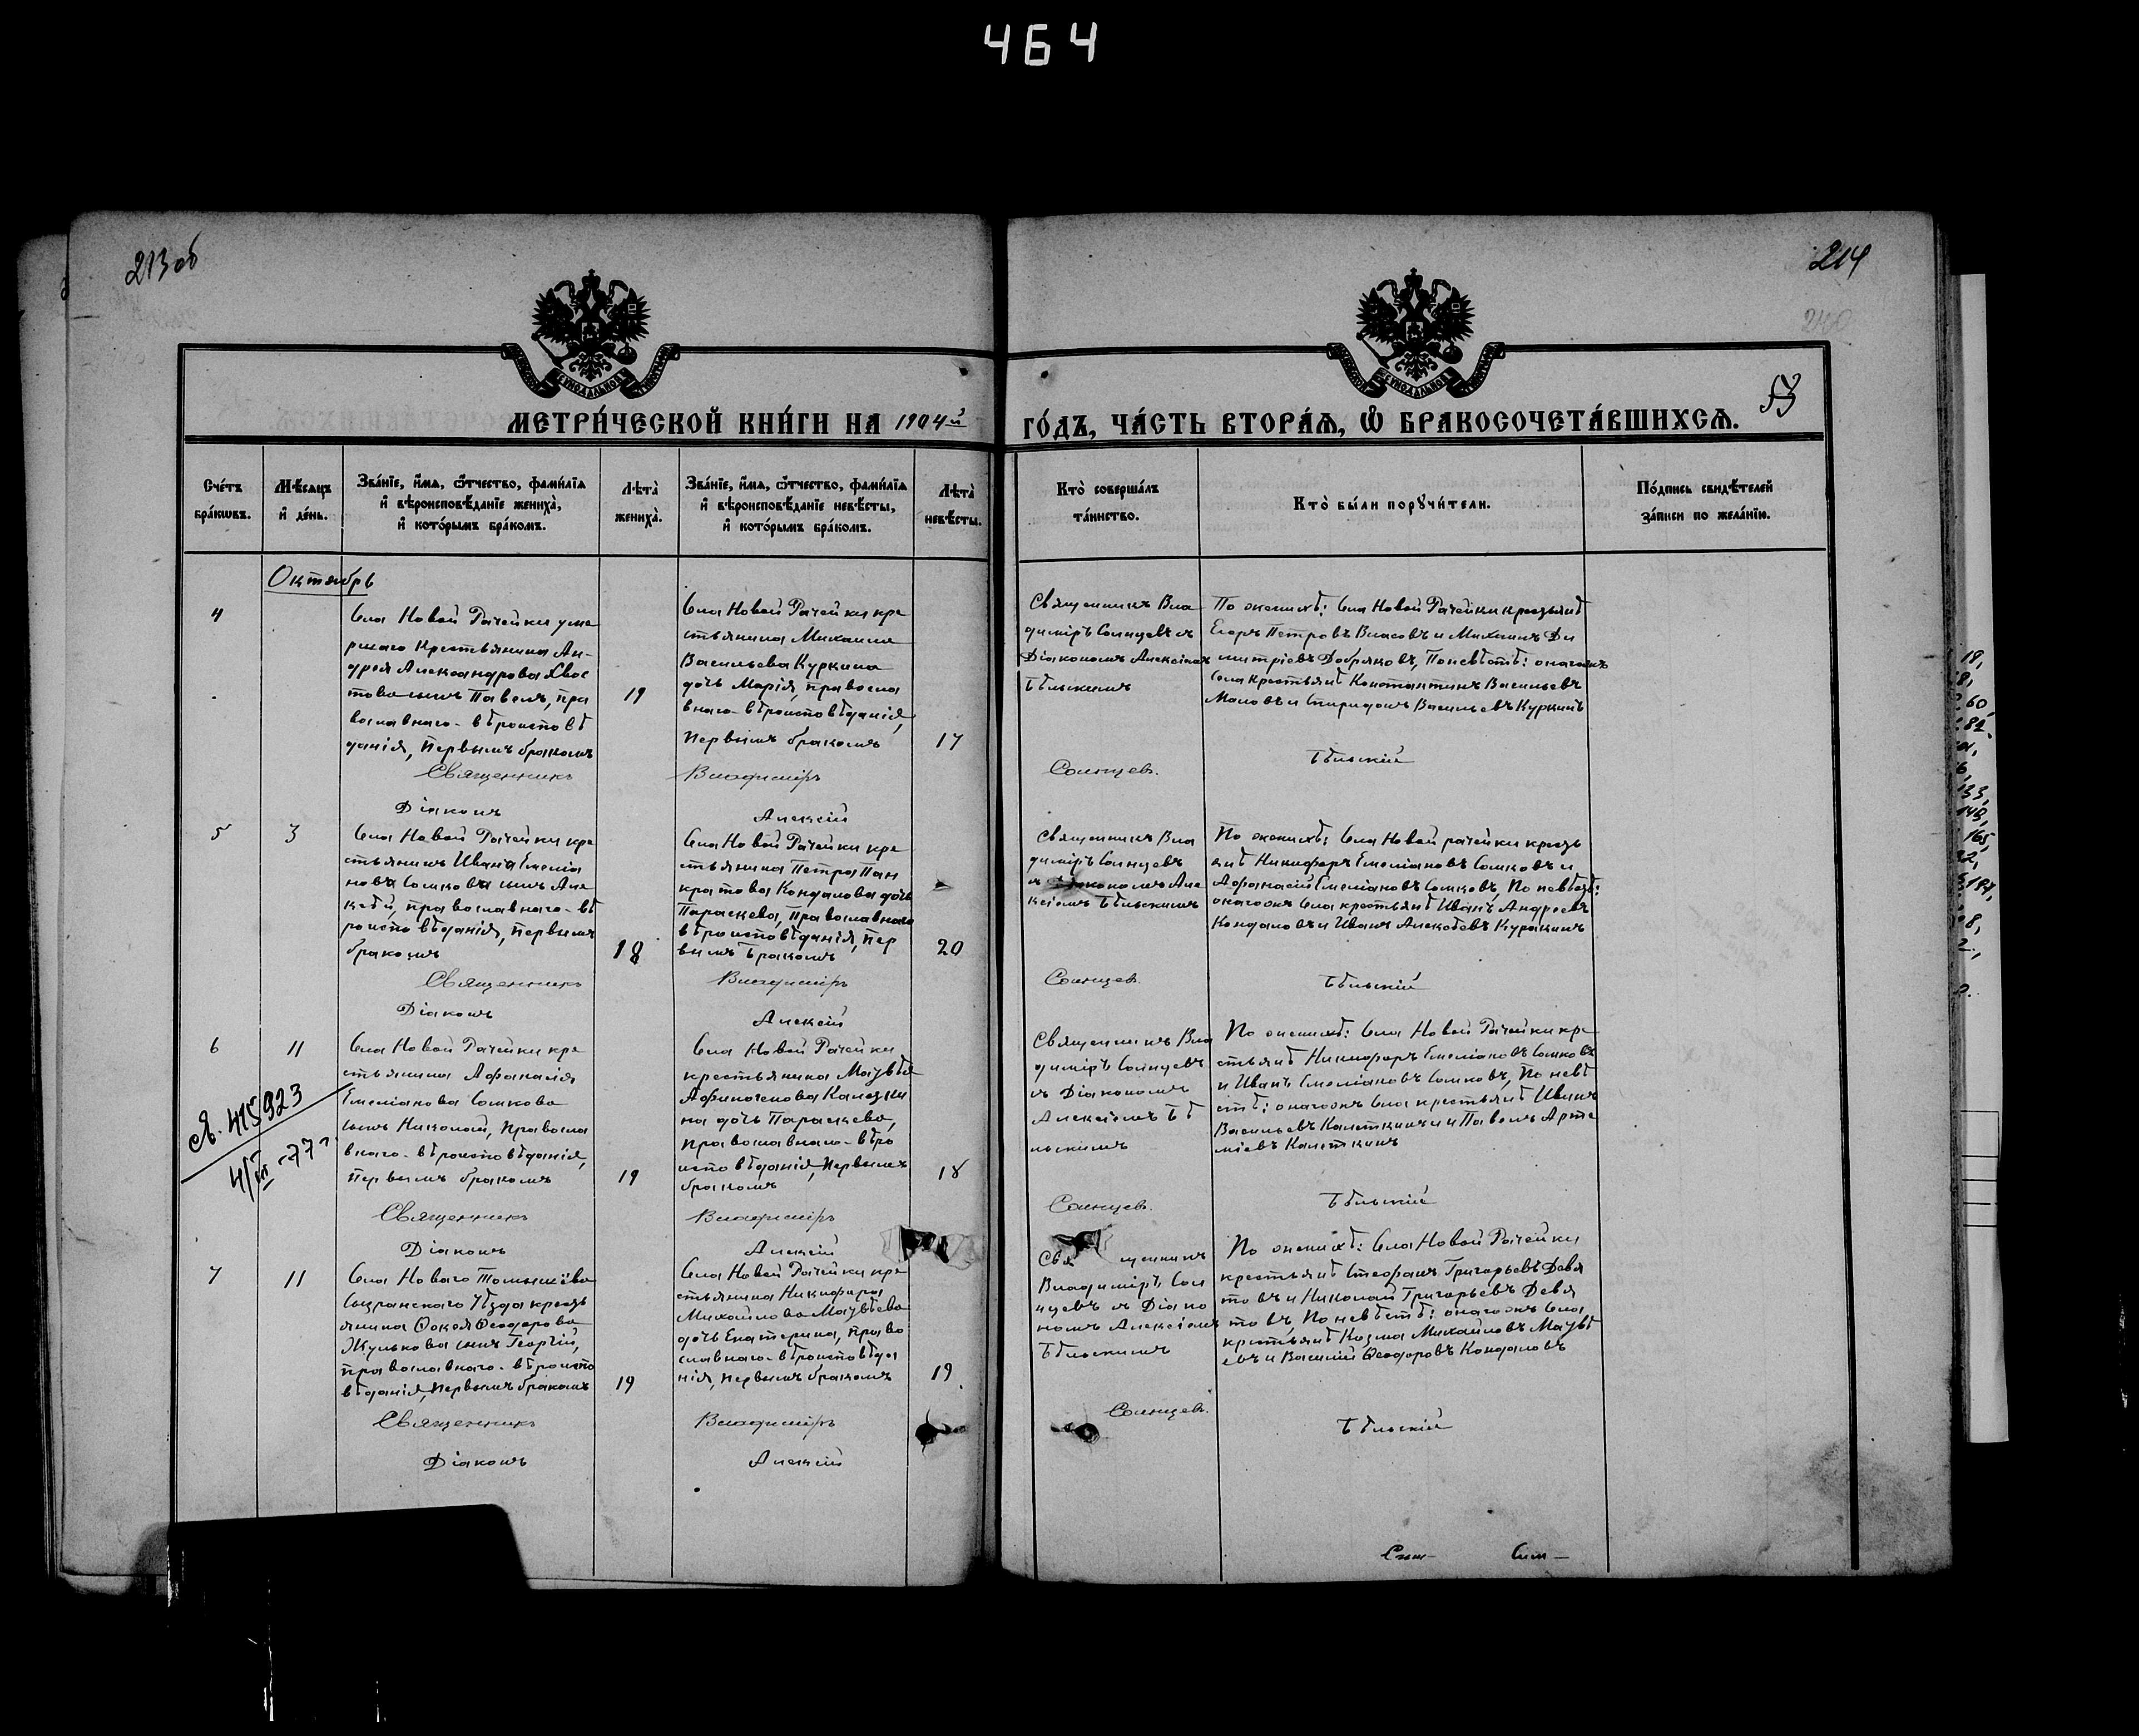 464
213об
214
МЕТРИ́ЧЕСКОЙ КНИ́ГИ НА 1904й
ГО́ДЪ, ЧА́СТЬ ВТОРА́Ѧ, Ѽ БРАКОСОЧЕТА́ВШИХСѦ.
Сче́тъ бра́кѡвъ.
Мѣ́сѧцъ и҆ де́нь.
Зва́нїе, и҆́мѧ, ѻ҆́тчество, фами́лїѧ
и҆ вѣроисповѣ́данїе жениха̀,
и҆ кото́рымъ бра́комъ.
Лѣта̀ жениха̀.
Зва́нїе, и҆́мѧ, ѻ҆́тчество, фами́лїѧ
и҆ вѣроисповѣ́данїе невѣ́сты,
и҆ кото́рымъ бра́комъ.
Лѣта̀ невѣ́сты.
Кто̀ соверша́лъ
та́инство.
Кто̀ бы́ли порꙋчи́тели.
По́дпись свидѣ́телей
за́писи по жела́нїю.
Октябрь
4
Села Новой Рачейки уме
ршаго Крестьянина Ан-
дрея Александрова Хвос
това сынъ Павелъ, пра
вославнаго-вѣроисповѣ
данія, первымъ бракомъ
19
Села Новой Рачейки кре
стьянина Михаила
Васильева Куркина
дочь Марія, правосла
внаго-вѣроисповѣданія,
Первымъ бракомъ
17
Священникъ Вла
диміръ Солнцевъ съ
Діакономъ Алексіемъ
Бѣльскимъ
По женихѣ: Села Новой Рачейки крестьянѣ
Егоръ Петровъ Власовъ и Михаилъ Ди
митріевъ Добряковъ, По невѣстѣ: онагожъ
Села крестьянѣ Константинъ Васильевъ
Маловъ и Спиридонъ Васильевъ Куркинъ
Священникъ Владиміръ Солнцевъ.
Діаконъ Алексій Бѣльскій
5
3
Села Новой Рачейки кре
стьянинъ Ивана Емеліа
нова Сомкова сынъ Але
ксѣй, православнаго-вѣ
роисповѣданія, первымъ
бракомъ
18
Села Новой Рачейки кре
стьянина Петра Пан
кратова Кондалова дочь
Параскева, Православнаго
вѣроисповѣданія, пер
вымъ бракомъ
20
Священникъ Вла
диміръ Солнцевъ
съ Діакономъ Але
ксіемъ Бѣльскимъ
По женихѣ: Села Новой рачейки кресть
янѣ Никифоръ Емеліановъ Сомковъ и
Афанасій Емеліановъ Сомковъ, По невѣстѣ:
онагожъ Села крестьянѣ Иванъ Андреевъ
Кондаловъ и Иванъ Алексѣевъ Куракинъ
Священникъ Владиміръ Солнцевъ.
Діаконъ Алексій Бѣльскій
6
11
Села Новой Рачейки кре
стьянина Афанасія
Емеліанова Сомкова
сынъ Николай, Правосла
внаго-вѣроисповѣданія,
первымъ бракомъ
19
Села Новой Рачейки
крестьянина Матвѣя
Афиногенова Калетки
на дочь Параскева,
православнаго-вѣро
исповѣданія, первымъ
бракомъ
18
Священникъ Вла
диміръ Солнцевъ
съ Діакономъ
Алексіемъ Бѣ
льскимъ
По женихѣ: Села Новой Рачейки кре
стьянѣ Никифоръ Емеліановъ Сомковъ
и Иванъ Емеліановъ Сомковъ, По невѣ
стѣ: онагожъ Села крестьянѣ Иванъ
Васильевъ Калеткинъ и Павелъ Арте
міевъ Калеткинъ
Я. 415923
4/VI-77 г.
Священникъ Владиміръ Солнцевъ.
Діаконъ Алексій Бѣльскій
7
11
Села Новаго Томышёва
Сызранскаго Уѣзда кресть
янина Ѳокея Ѳеодорова
Жулькова сынъ Георгій,
православнаго-вѣроиспо
вѣданія, первымъ бракомъ
19
Села Новой Рачейки кре
стьянина Никифора
Михайлова Матвѣева
дочь Екатерина, право
славнаго-вѣроисповѣда
нія, первымъ бракомъ
19
Священникъ
Владиміръ Сол
нцевъ съ Діако
номъ Алексіемъ
Бѣльскимъ
По женихѣ: Села Новой Рачейки
крестьянѣ Стефанъ Григорьевъ Девя
товъ и Николай Григорьевъ Девя
товъ, По невѣстѣ: онагожъ Села
крестьянѣ Козма Михайловъ Матвѣ
евъ и Василій Ѳеодоровъ Кондаловъ
Священникъ Владиміръ Солнцевъ.
Діаконъ Алексій Бѣльскій